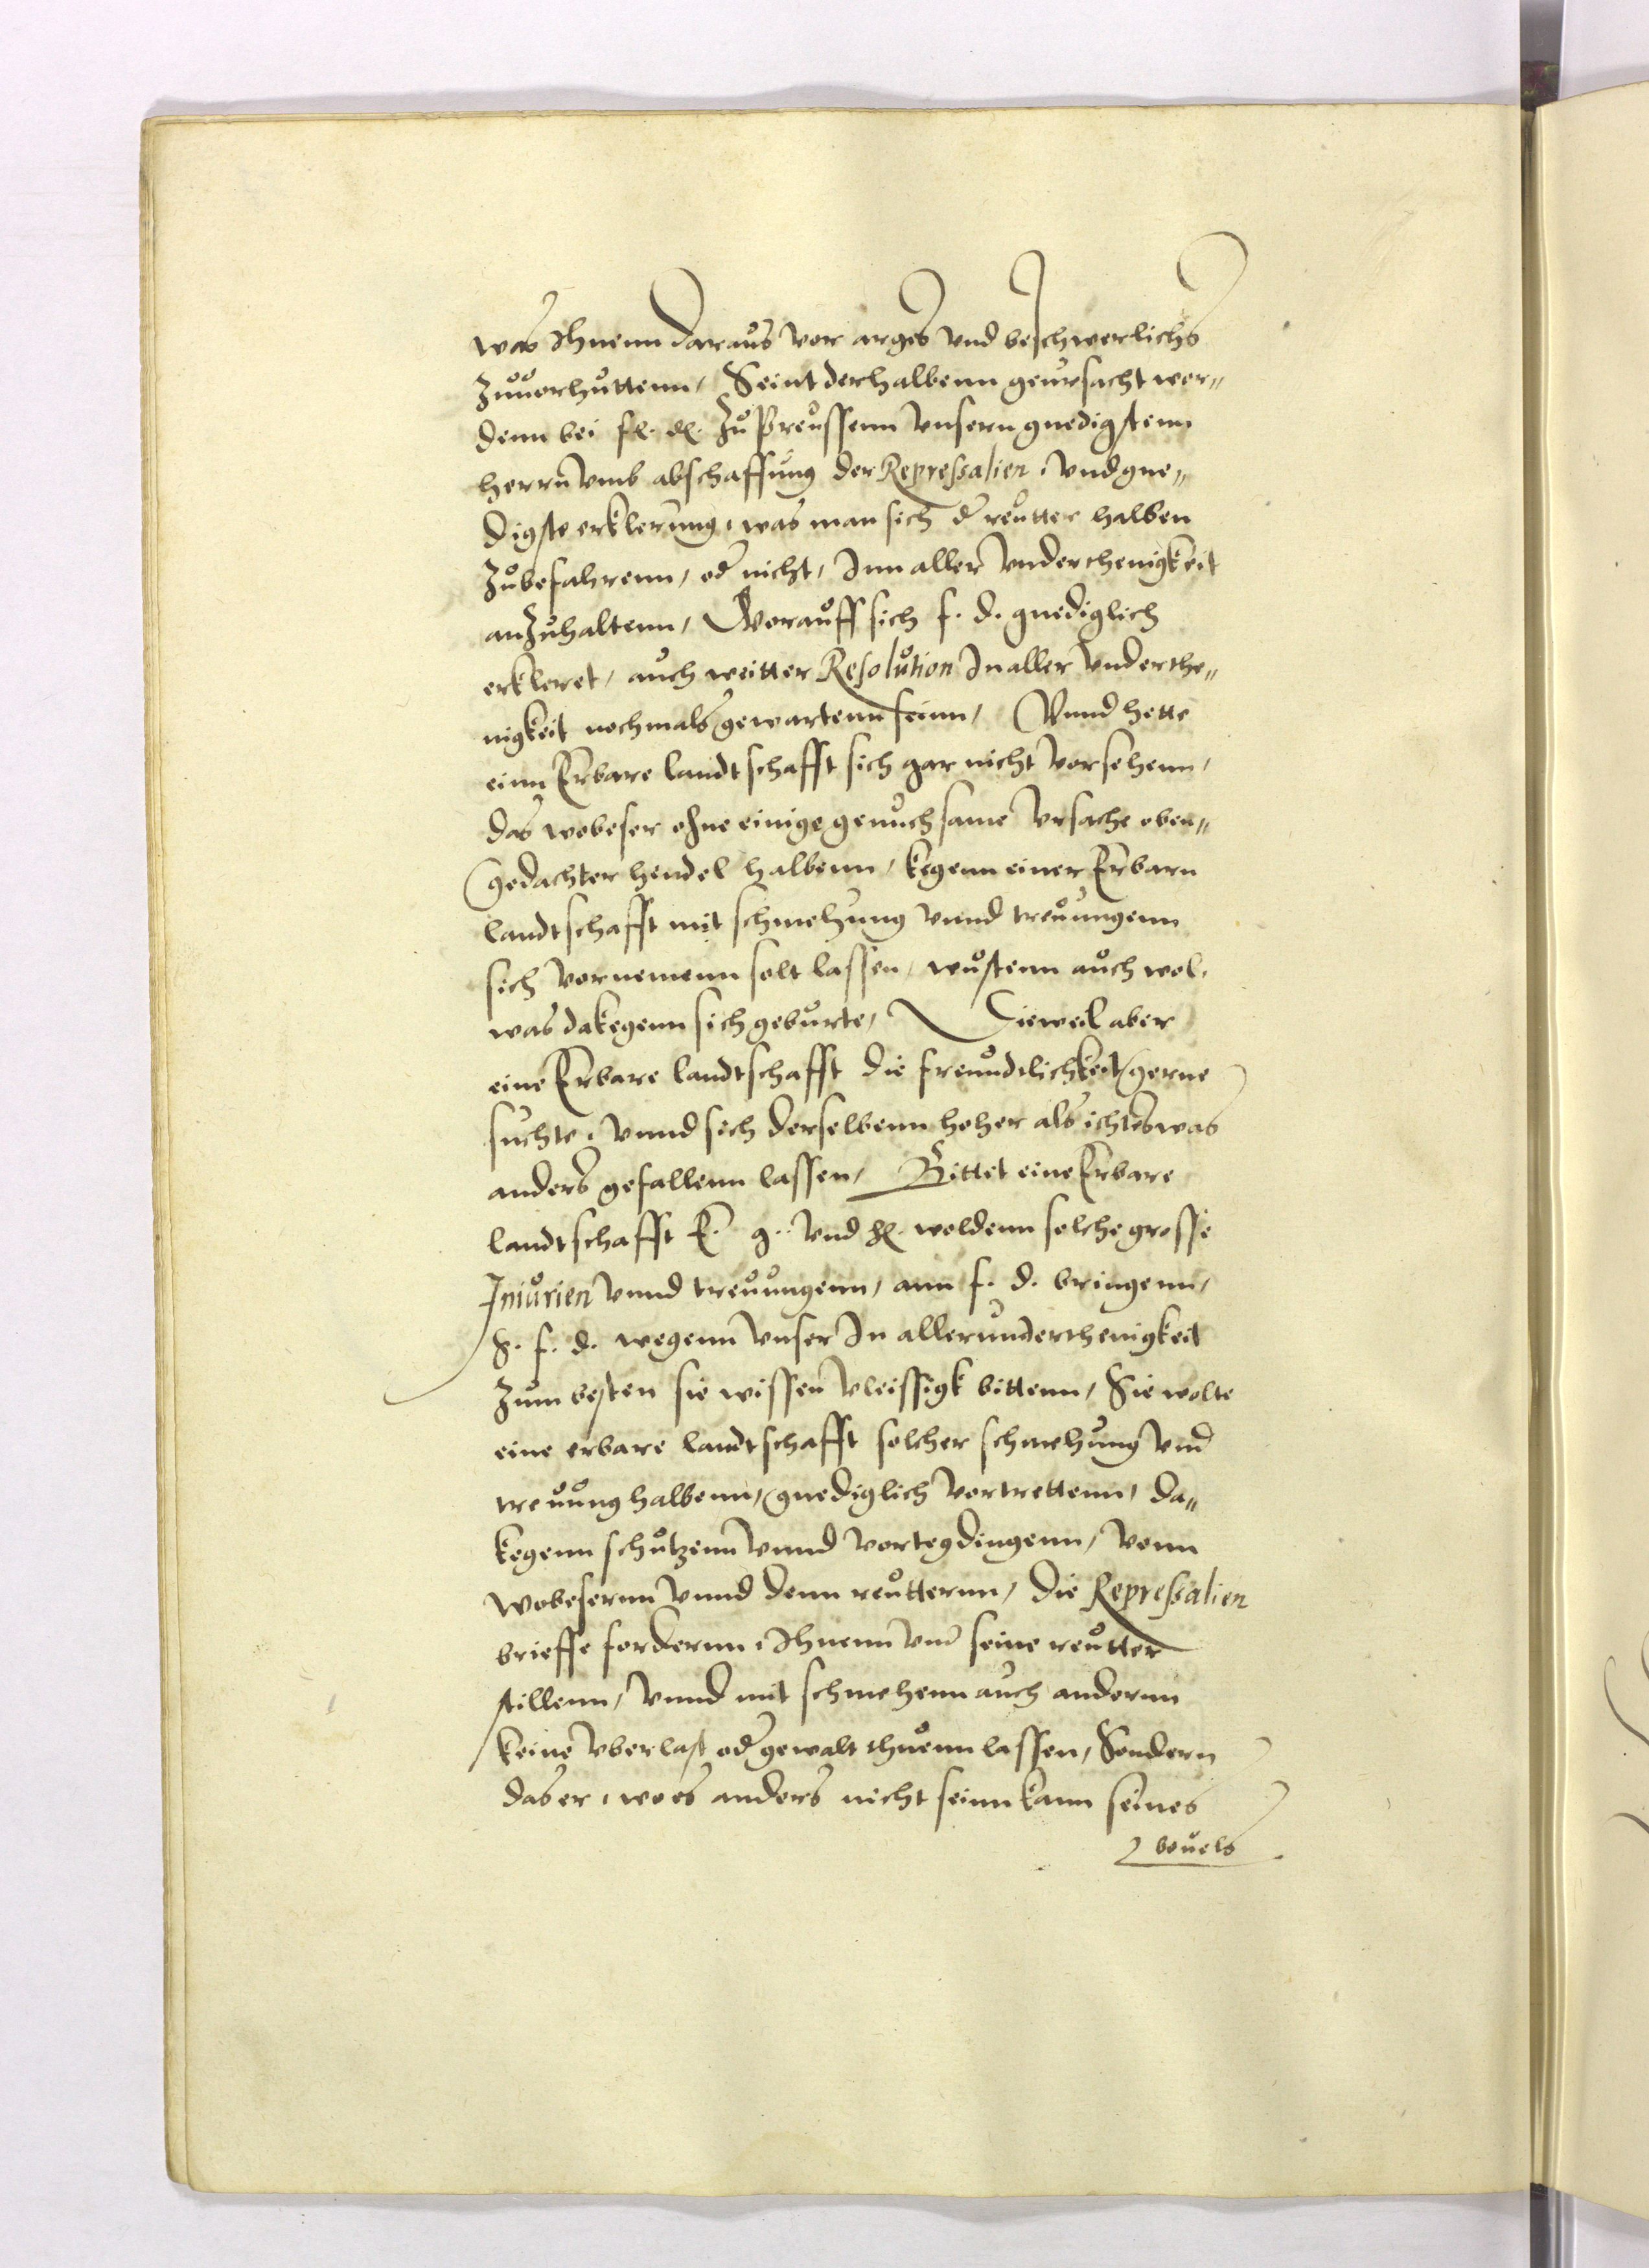 was Ihnenn daraus vor arges vnd beschwerlichs
Zuuorhuttenn, Seint derhalbenn geursacht wor„
denn bei fl. dl. Zu Preussenn vnsern gnedigstenn
herrn vmb abschaffung der Repressalien, vnd gne„
digste erklerung, was man sich d reutter halben
Zubefahrenn, od nicht, Inn aller vnderthenigkeit
anzuhaltenn, Worauff sich f. d. gnediglich
erkleret, auch weitter Resolution In aller vnderthe„
nigkeit nochmals gewartenn sein, Vnnd hette
einn Erbare landtschafft sich gar nicht vorsehenn,
das wobeser ohne einige genuchsame vrsache oben„
gedachter hendel halbenn, kegenn einer Erbarn
landtschafft mit schmehung vnnd treuungenn
sich vornemenn solt lassen, wustenn auch wol,
was dakegenn sich geburte, Dieweil aber
eine Erbare landtschafft die freundtlichkeit gerne
suchte, vnnd sich derselbenn hoher als ichteswas
anders gefallenn lassen, Bittet eine Erbare
landtschafft E. g. vnd hl. woldenn solche grosse
Iniurien vnnd treuungenn, ann f. d. bringenn,
S. f. d. wegenn vnser In aller vnderthenigkeit
Zum besten sie wissen vleissigk bittenn, Sie wolte
eine erbare landtschafft solcher schmehung vnd
treuung halbenn, gnediglich vortrettenn, da„
kegenn schutzenn vnnd vortegdingenn, vonn
wobesernn vnnd denn reutternn, die Repressalien
brieffe fordernn, Ihnenn vnd seine reutter
stillenn, vnnd mit schmehenn auch andernn
keine vberlast od gewalt thuenn lassen, Sondern
das er, wo es anders nicht seinn kann seines
beuels